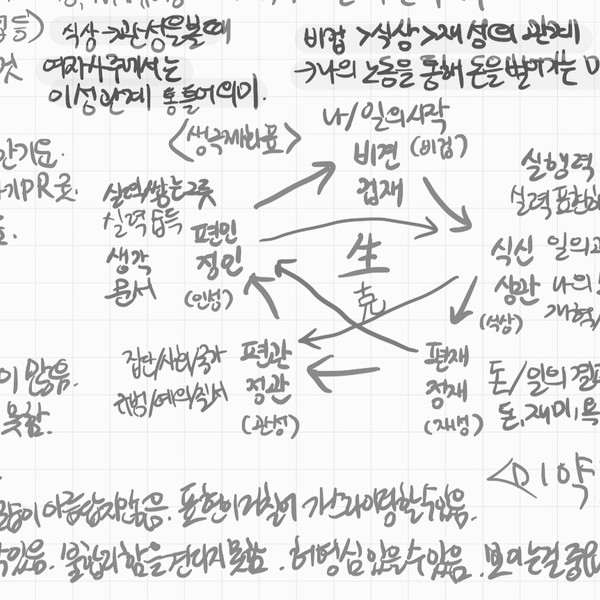 식상→관성을볼때
여자사주에서는
이성관계 통틀어의미.
비겁>식상>재성의 관계
→나의 노동을 통해 돈을벌어가는
<생극제화표>
나/일의시작
비견 (비겁)
겁재
실력/쌓는그릇
실력 습득
편인
정인
(인성)
생각
문서
生
克
실행력
실력 표현
식신 일의
상관 나의
(식상) 개혁/
집단/사회/국가
규범/예의/질서
편관
정관
(관성)
편재
정재
(재성)
돈/일의결과
돈,재미,욕
PR로.
이 많음.
못함.
<미약
아름답지않음. 표현이거칠어 가스라이팅할수있음.
있음. 불합리함을견디지못함. 허영심있을수있음. 보이는걸중요